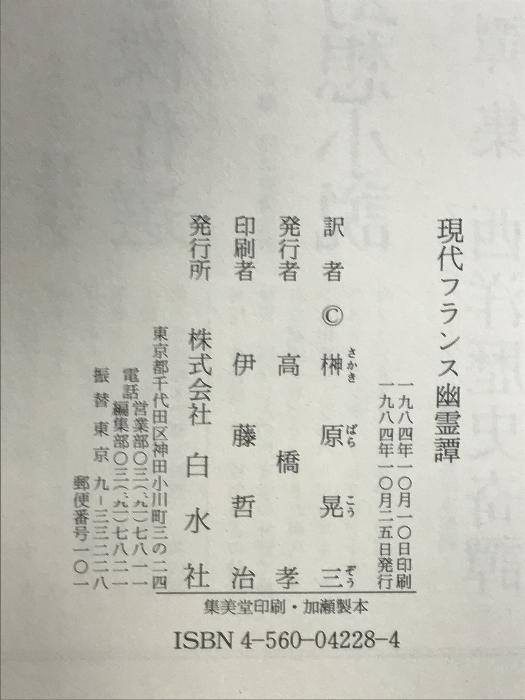 現代フランス幽霊譚
一九八四年一〇月一〇日印刷
一九八四年一〇月二五日発行
訳者 © 榊原晃三
さかき ばら こう ぞう
発行者 高橋孝
印刷者 伊藤哲治
発行所 株式会社白水社
東京都千代田区神田小川町三の二四
電話 営業部〇三(二九一)七八一一
編集部〇三(二九一)七八二一
振替東京 九-三三二二八
郵便番号一〇一
集美堂印刷・加瀬製本
ISBN 4-560-04228-4